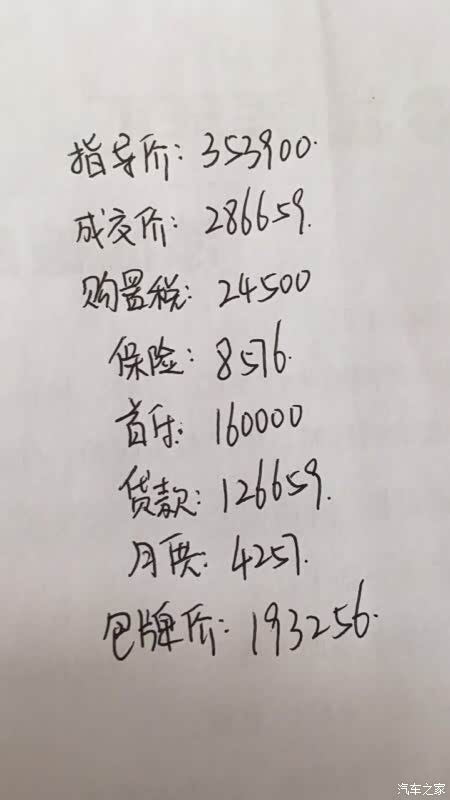 指导价: 353900.
成交价: 286659.
购置税: 24500
保险: 8576.
首付: 160000
贷款: 126659.
月供: 4257.
包牌价: 193256.
汽车之家